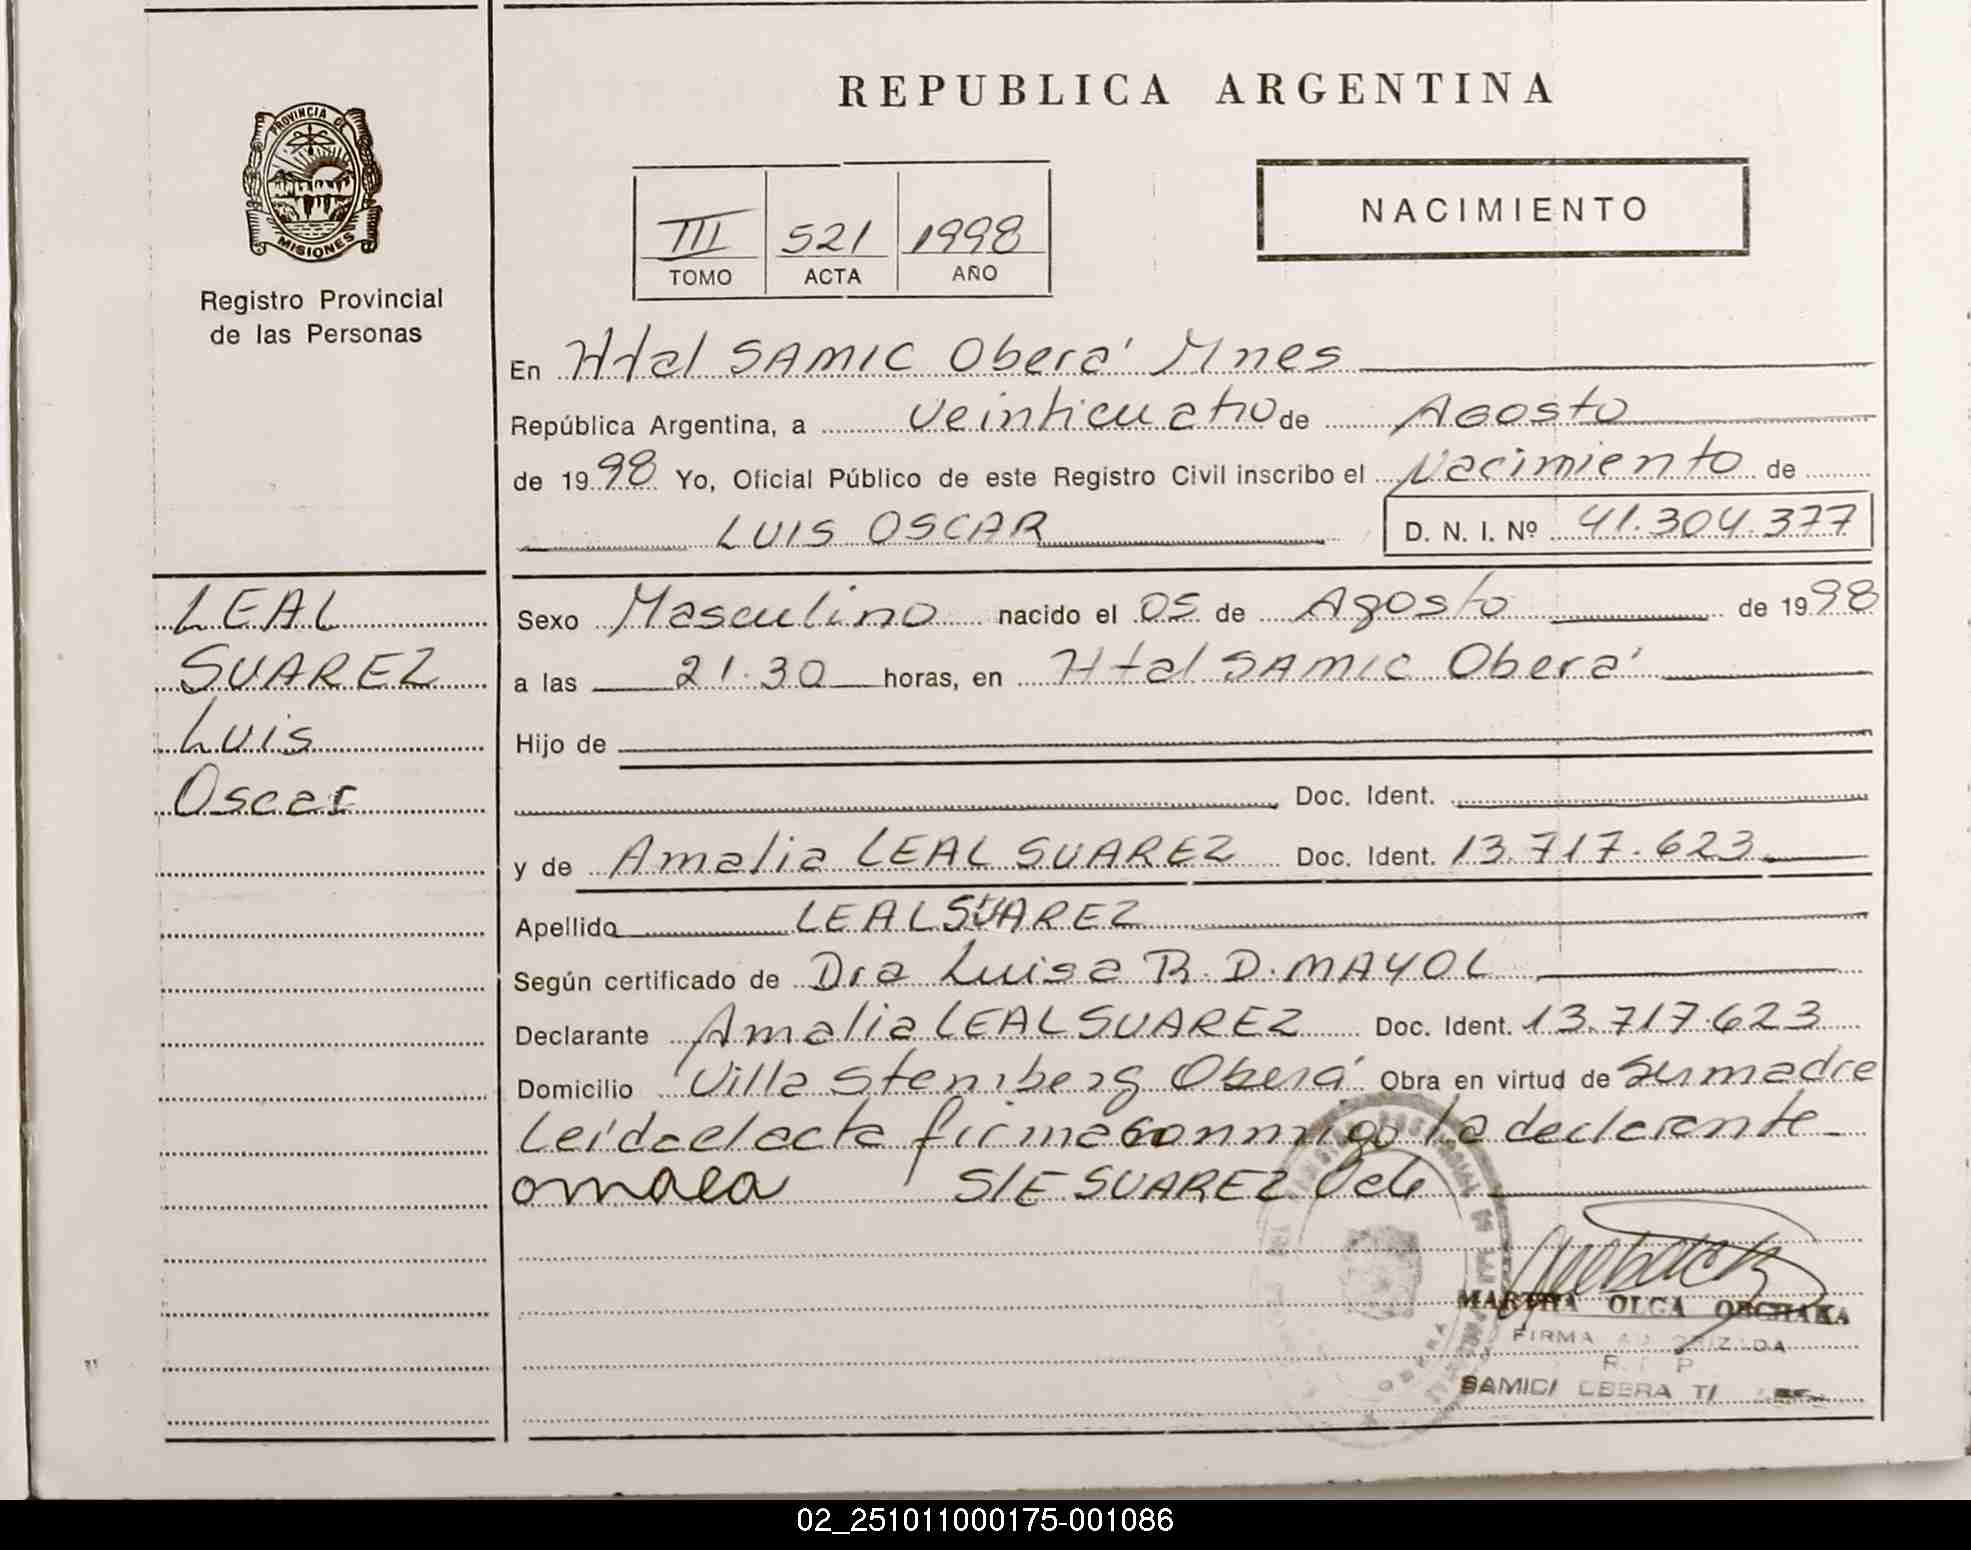 REPUBLICA ARGENTINA
PROVINCIA DE
MISIONES
Registro Provincial
de las Personas
III 521 1998
TOMO ACTA AÑO
NACIMIENTO
En Htal SAMIC Oberá Mnes
República Argentina, a Veinticuatro de Agosto
de 1998 Yo, Oficial Público de este Registro Civil inscribo el Nacimiento de
LUIS OSCAR D. N. I. Nº 41.304.377
LEAL
SUAREZ
Luis
Oscar
Sexo Masculino nacido el 05 de Agosto de 1998
a las 21.30 horas, en Htal SAMIC Oberá
Hijo de
Doc. Ident.
y de Amalia LEAL SUAREZ Doc. Ident. 13.717.623
Apellido LEAL SUAREZ
Según certificado de Dra Luisa R. D. MAYOL
Declarante Amalia LEAL SUAREZ Doc. Ident. 13.717.623
Domicilio Villa Stemberg Oberá Obra en virtud de Ser madre
Leída el acta firma conmigo la declarante
omaea S/E SUAREZ Vale
MARTHA OLGA OBCHAKA
FIRMA AUTORIZADA
R. P
SAMIC/ OBERA T/
02_251011000175-001086